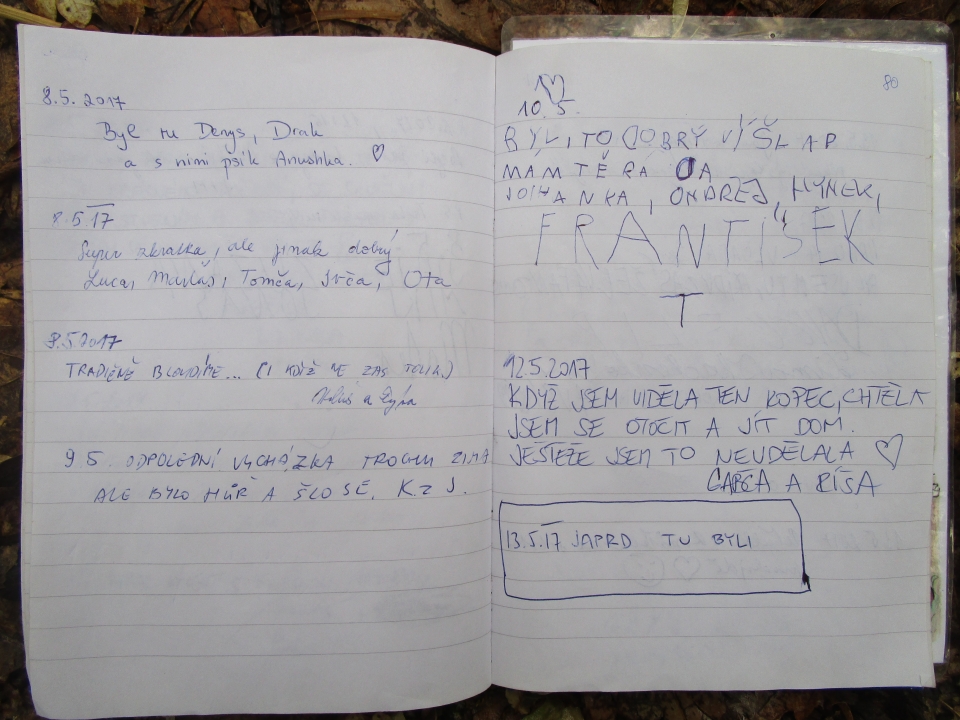 8.5. 2017
Byl tu Denys, Drak
a s nimi psík Anushka. ♡
8.5 17
Super zkratka, ale jinak dobrý
Luca, Tomča, Ota
8.5 2017
TRADIČNĚ BLOUDÍME... (I KDYŽ NE ZAS TOLIK.)
a
9.5. ODPOLEDNÍ VYCHÁZKA TROCHU ZIMA
ALE BYLO HŮŘ A ŠLO SE. K. Z J.
80
10. 5.
BYL TO DOBRÝ VÝŠLAP
MAM TĚ RÁDA
JOHANKA, ONDŘEJ, HYNEK,
FRANTIŠEK
T
12.5.2017
KDYŽ JSEM VIDĚLA TEN KOPEC, CHTĚLA
JSEM SE OTOČIT A JÍT DOM.
JEŠTĚŽE JSEM TO NEUDĚLALA ♡
A RÍŠA
13.5.17 JAPRD TU BYLI